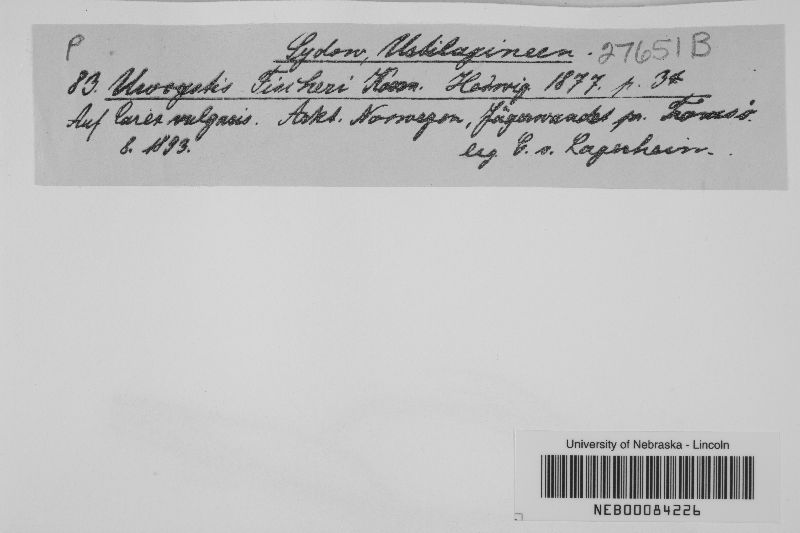 P
Sydow, Ustilagineen. 27651 B
83. Urocystis Fischeri Körn. Hedwig 1877. p. 34
Auf Carex vulgaris. Arkt. Norwegen, Jägervandet pr. Tromsö.
8. 1893. leg. G. v. Lagerheim.
University of Nebraska - Lincoln
NEB00084226